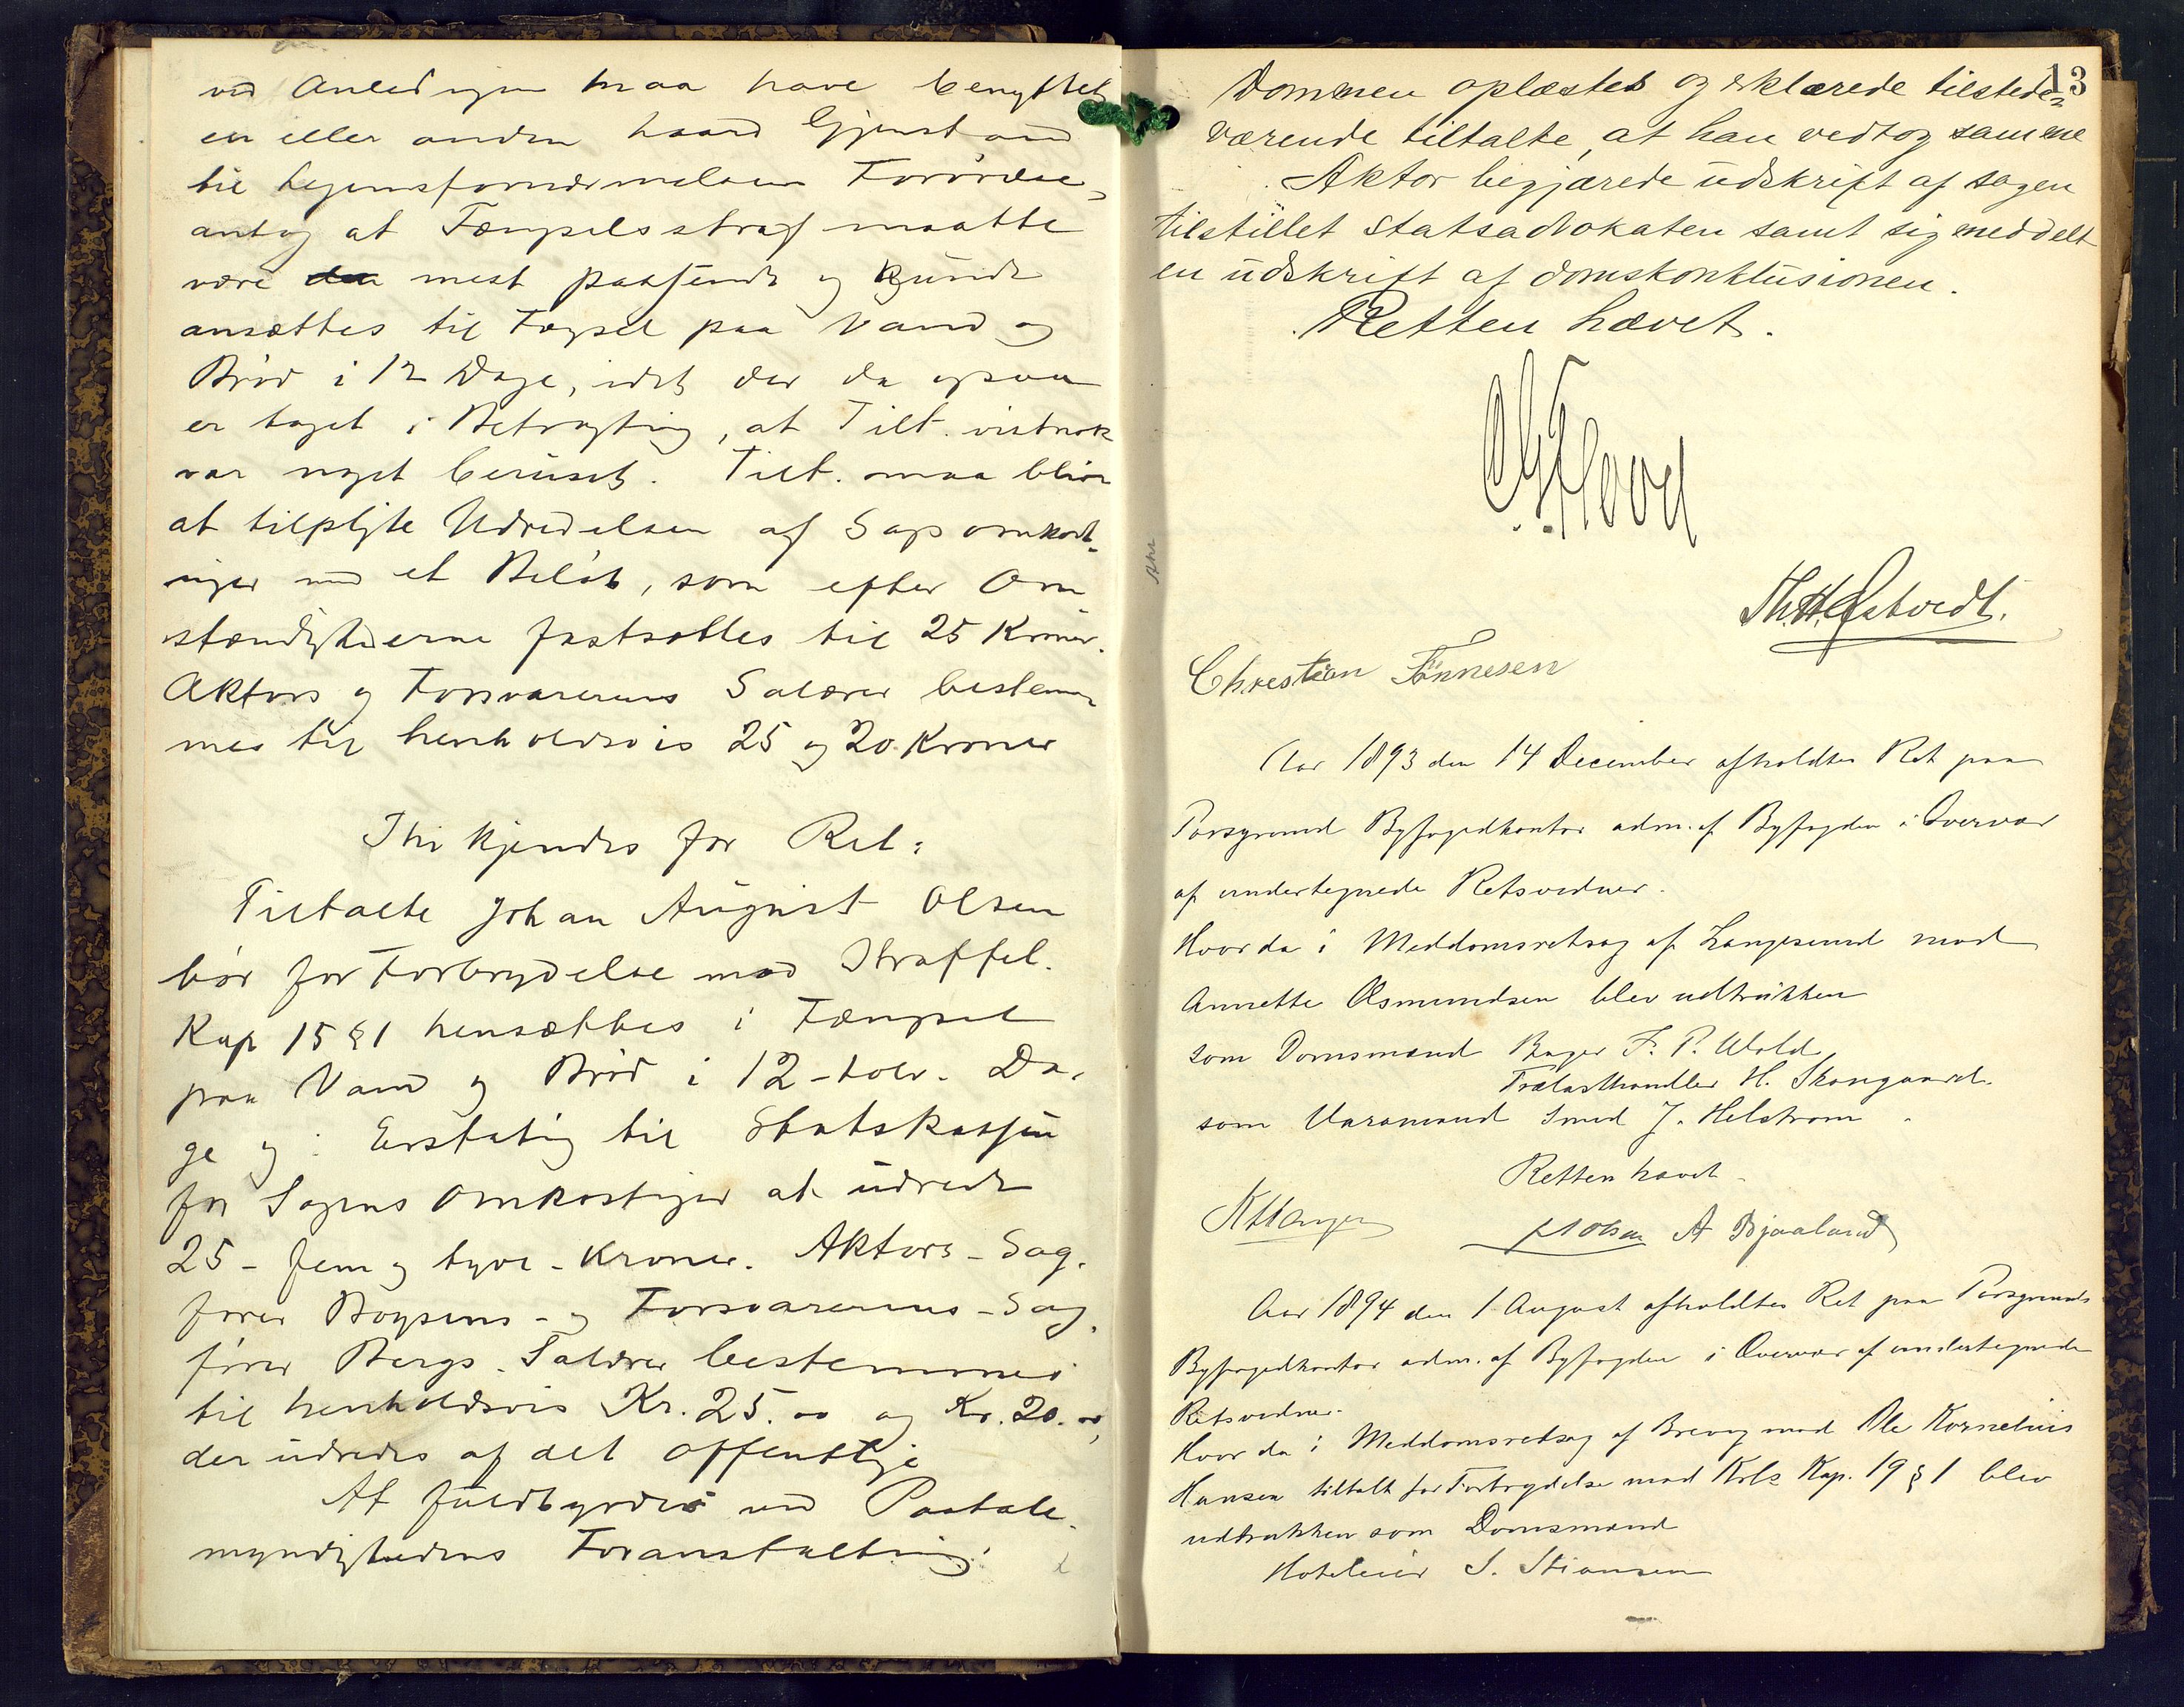 ved Anledningen maa have benyttet
en eller anden haard Gjenstand
til Legemsfornærmelsens Forøvelse,
antog at Fængselsstraf maatte
være den mest passende og kunde
ansættes til Fængsel paa Vand og
Brød i 12 Dage, idet der da ogsaa
er taget i Betragtning, at Tilt. vistnok
var noget beruset. Tilt. maa blive
at tilpligte Udredelsen af Sagsomkost-
ninger med et Beløb, som efter Om-
stændighederne fastsættes til 25 Kroner.
Aktors og Forsvarerens Salærer bestem-
mes til henholdsvis 25 og 20 Kroner
Thi kjendes for Ret:
Tiltalte Johan August Olsen
bør for Forbrydelse mod Straffel.
Kap 15 § 1 hensættes i Fængsel
paa Vand og Brød i 12 - tolv - Da-
ge og i Erstatning til Statskassen
for Sagens Omkostninger at udrede
25 - fem og tyve - Kroner. Aktors - Sag-
fører Boysens - og Forsvarerens - Sag-
fører Bergs - Salærer bestemmes
til henholdsvis Kr. 25.00 og Kr. 20.00,
der udredes af det Offentlige
At fuldbyrdes ved Paatale-
myndighedens Foranstaltning.
13
Dommen oplæstes og erklærede tilstede-
værende tiltalte, at han vedtog samme
Aktor begjærede udskrift af sagen
tilstillet Statsadvokaten samt sig meddelt
en udskrift af domskonklusionen.
Retten hævet.
Flood
Christian Tønnesen
Aar 1893 den 14 December afholdtes Ret paa
Porsgrund Byfogedkontor adm. af Byfogden i Overvær
af undertegnede Retsvidner.
Hvorda i Meddomsretsag af Langesund mod
Annette Osmundsen blev udtrukken
som Domsmænd Bager F. P. Wold
Trælasthandler H. Skougaard.
som Varamand Smed J. Helstrøm.
Retten hævet.
A Bjaaland
Aar 1894 den 1 August afholdtes Ret paa Porsgrunds
Byfogedkontor adm. af Byfogden i Overvær af undertegnede
Retsvidner.
Hvorda i Meddomsretsag af Brevig mod Ole Kornelius
Hansen tiltalt for Forbrydelse mod Krls Kap. 19 § 1 blev
udtrukken som Domsmænd
Hoteleier S. Stiansen